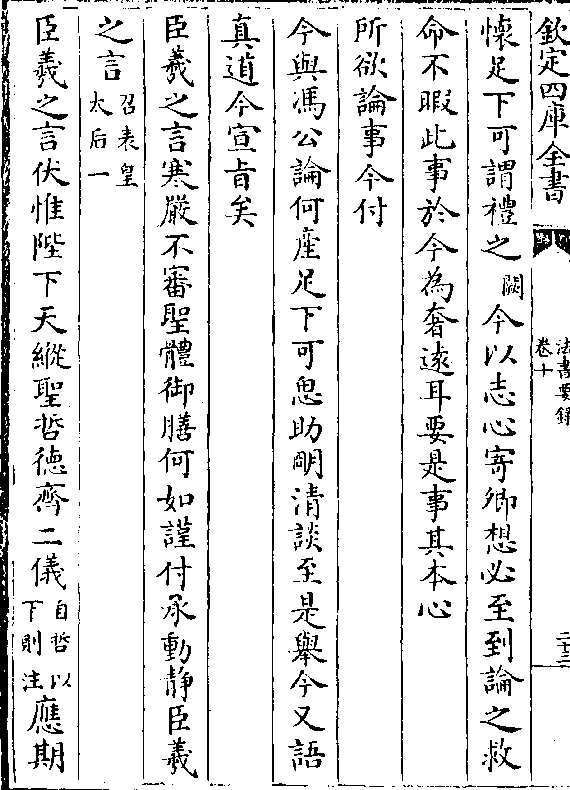 欽定四庫全書
法書要錄
卷十
二十三
懷足下可謂禮之闕今以志心寄卿想必至到論之救
命不暇此事於今為奢遠耳要是事其本心
所欲論事今付
今與馮公論何產足下可思助明清談至是舉今又語
真道今宣旨矣
臣羲之言寒嚴不審聖體御膳何如謹付承動靜臣羲
之言召表皇太后一
臣羲之言伏惟陛下天縱聖哲德齊二儀自哲以下則注應期